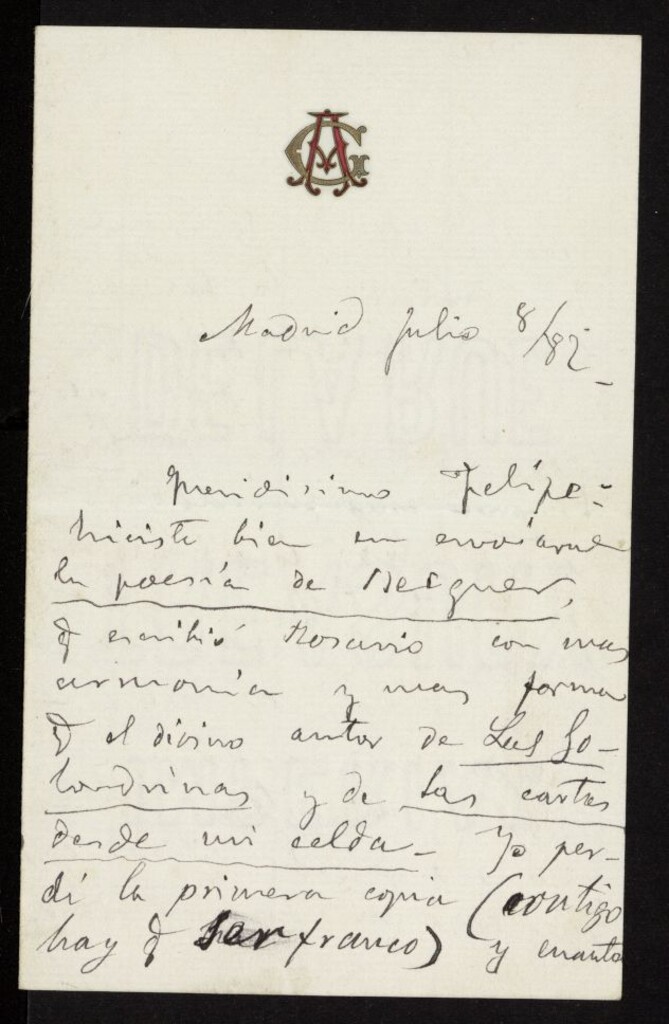 Madrid Julio 8/82 -
Queridisimo Felipe =
hiciste bien en enviarme
la poesía de Becquer,
q escribió Rosario con mas
armonía y mas forma
q el divino autor de Las Go-
londrinas y de Las cartas
desde mi celda - Yo per-
dí la primera copia (contigo
hay q ser franco) y cuanto